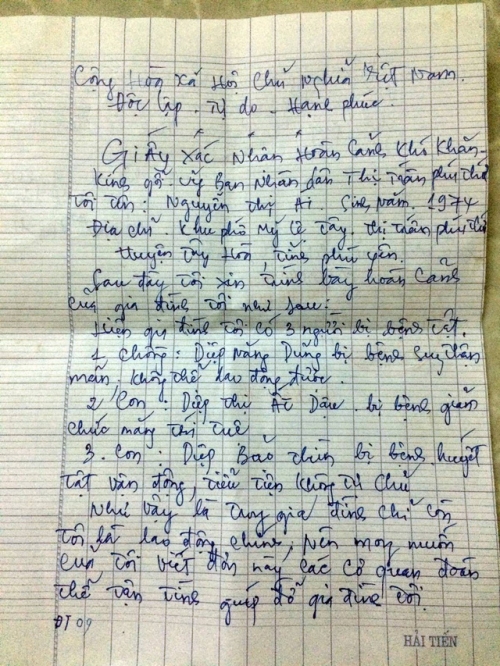 Cộng Hòa Xã Hội Chủ Nghĩa Việt Nam.
Độc lập. Tự do. Hạnh phúc
Giấy Xác Nhân Hoàn Cảnh Khó Khăn
Kính gỡi: Uỷ Ban Nhân dân Thị Trấn phú thứ
Tôi tên: Nguyễn thị Ái. Sinh năm. 1974
Địa chỉ. Khu phố Mỹ Lệ Tây. thị trấn phú thứ
Huyện Tây Hòa, tỉnh phú yên.
Sau đây tôi xin trình bày hoàn cảnh
của gia đình tôi như sau:
Hiện gia đình tôi có 3 người bị bệnh tật.
1. Chồng: Diệp Năng Dũng bị bệnh suy thận
mãn, không thể lao động được.
2. Con: Diệp thị Ất Dậu. bị bệnh giảm
chức năng trí tuệ
3. Con: Diệp Bảo bị bệnh. khuyết
tật vận động, tiểu tiện không tự chủ
Như vậy là trong gia đình chỉ còn
tôi là lao động chính, nên mong muốn
của tôi viết đơn này các cơ quan đoàn
thể tận tình giúp đỡ gia đình tôi.
ĐT 09
HẢI TIẾN